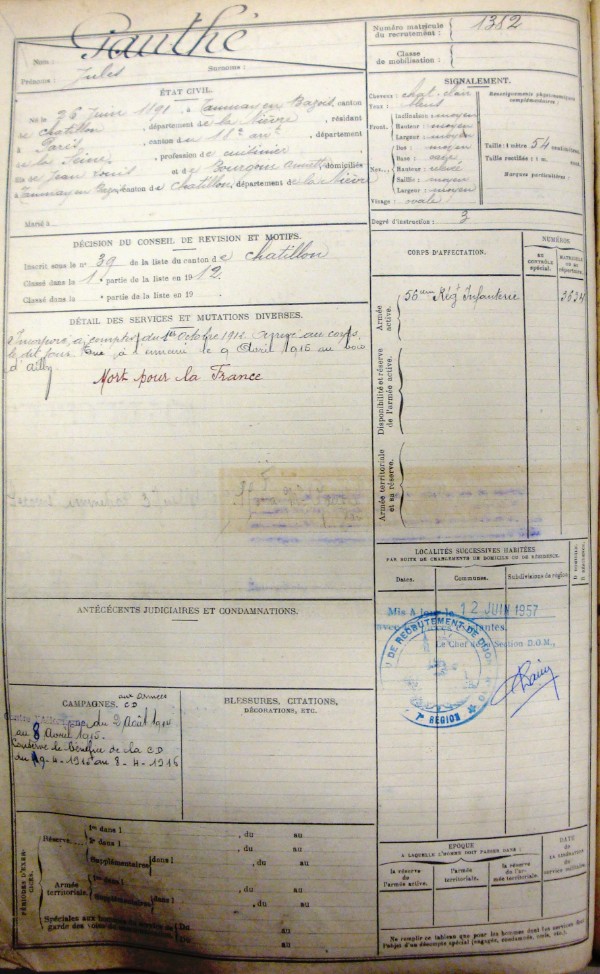 Nom : Gauthé
Prénoms : Jules Surnoms :
Numéro matricule du recrutement : 1382
Classe de mobilisation :
ÉTAT CIVIL.
Né le 26 Juin 1891, à Tannay en Bazois, canton
de chatillon, département de la Nièvre, résidant
à Paris, canton du 18e arrt, département
de la Seine, profession de cuisinier
fils de Jean Louis et de Bourgoin, domiciliés
à Tannay en Bazois, canton de Chatillon, département de la Nièvre
Marié à
SIGNALEMENT.
Cheveux : chat. clair
Yeux : bleus
Front. Inclinaison : moyen
Hauteur : moyen
Largeur : moyen
Nez. Dos : moyen
Base :
Hauteur :
Saillie : moyen
Largeur : moyen
Visage : ovale
Renseignements physionomiques complémentaires :
Taille : 1 mètre 54 centimètres
Taille rectifiée : 1 m. cent.
Marques particulières :
Degré d'instruction : 3
DÉCISION DU CONSEIL DE REVISION ET MOTIFS.
Inscrit sous le n° 39 de la liste du canton de chatillon
Classé dans la 1e partie de la liste en 1912.
Classé dans la e partie de la liste en 19
DÉTAIL DES SERVICES ET MUTATIONS DIVERSES.
Incorporé à compter du 1er Octobre 1912. Arrivé au corps
le dit jour. Tué à l'ennemi le 9 Avril 1915 au bois
d'Ailly
Mort pour la France
CORPS D'AFFECTATION.
NUMÉROS
AU CONTRÔLE spécial.
MATRICULE OU AU RÉPERTOIRE.
Armée active.
56eme Régt Infanterie
Disponibilité et réserve de l'armée active.
Armée territoriale et sa réserve.
ANTÉCÉDENTS JUDICIAIRES ET CONDAMNATIONS.
LOCALITÉS SUCCESSIVES HABITÉES
PAR SUITE DE CHANGEMENTS DE DOMICILE OU DE RÉSIDENCE.
Dates.
Communes.
Subdivisions de région.
D. DOMICILE.
R. RÉSIDENCE.
Mis A jour le 12 JUIN 1957
Le Chef de la Section D.O.M.,
DE RECRUTEMENT DE DIJON
7e RÉGION
CAMPAGNES.
aux Armées
C D
du 2 Août 1914
au 8 Avril 1915.
Conserve le bénéfice de la C D
du 9-4-1915 au 8-4-1916
BLESSURES, CITATIONS,
DÉCORATIONS, ETC.
PÉRIODES D'EXERCICES.
Réserve
1re dans l , du au
2e dans l , du au
Supplémentaires dans l , du au
Armée territoriale.
1re dans l , du au
Supplémentaires dans l , du au
Spéciales aux
garde des voies de
Du au
Du au
EPOQUE
A LAQUELLE L'HOMME DOIT PASSER DANS :
la réserve de l'armée active.
l'armée territoriale.
la réserve de l'armée territoriale.
DATE
de la libération du service militaire.
Ne remplir ce tableau que pour les hommes dont les services font
l'objet d'un décompte spécial (engagés, condamnés, omis, etc.).